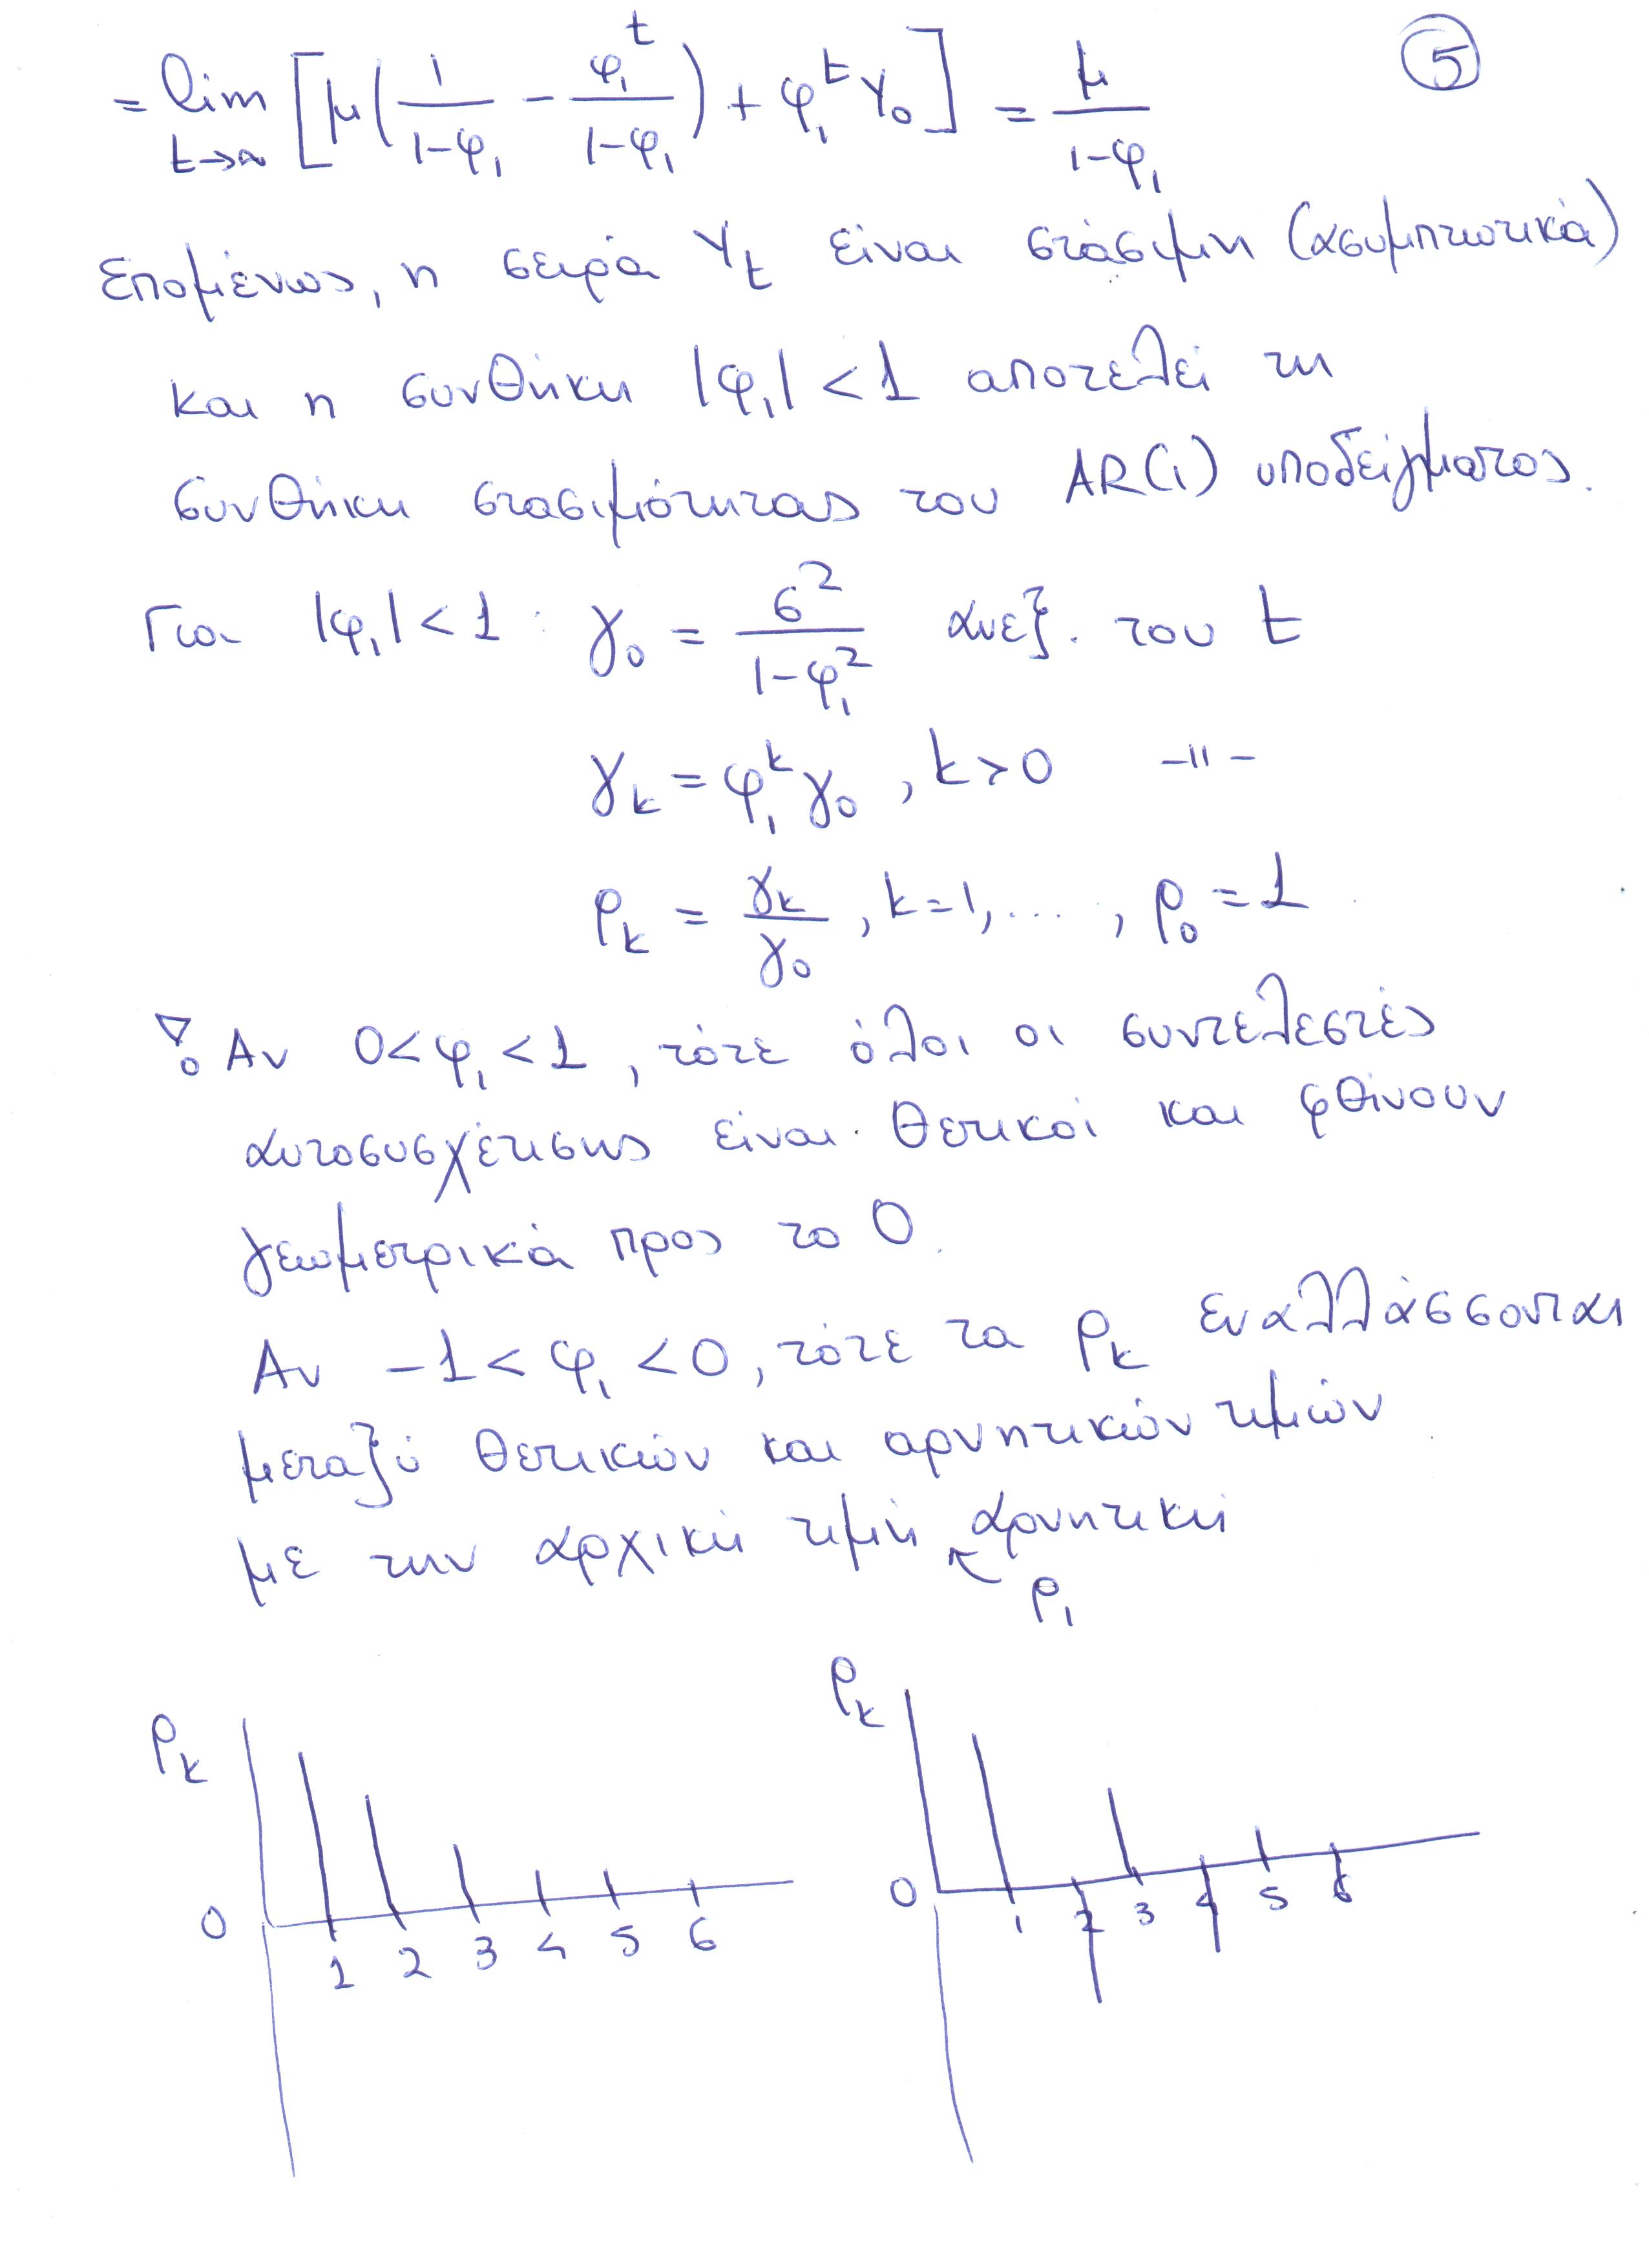 ⑤
= lim_{t→∞} [μ(1/(1-φ₁) - φ₁^t/(1-φ₁)) + φ₁^t Y₀] = μ/(1-φ₁)
Επομένως, η σειρά Y_t είναι στάσιμη (ασυμπτωτικά)
και η συνθήκη |φ₁| < 1 αποτελεί τη
συνθήκη στασιμότητας του AR(1) υποδείγματος.
Για |φ₁| < 1 : γ₀ = σ²/(1-φ₁²) ανεξ. του t
γ_k = φ₁^k γ₀ , k > 0 -||-
ρ_k = γ_k/γ₀ , k = 1, ... , ρ₀ = 1
Αν 0 < φ₁ < 1 , τότε όλοι οι συντελεστές
αυτοσυσχέτισης είναι θετικοί και φθίνουν
γεωμετρικά προς το 0.
Αν -1 < φ₁ < 0, τότε τα ρ_k εναλλάσσονται
μεταξύ θετικών και αρνητικών τιμών
με την αρχική τιμή αρνητική
ρ₁
ρ_k
0
1 2 3 4 5 6
ρ_k
0
1 2 3 4 5 6